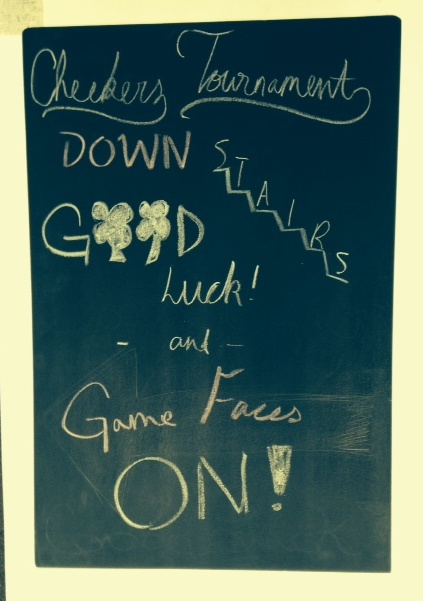 Checkers Tournament
DOWN STAIRS
GOOD
Luck!
- and -
Game Faces
ON!